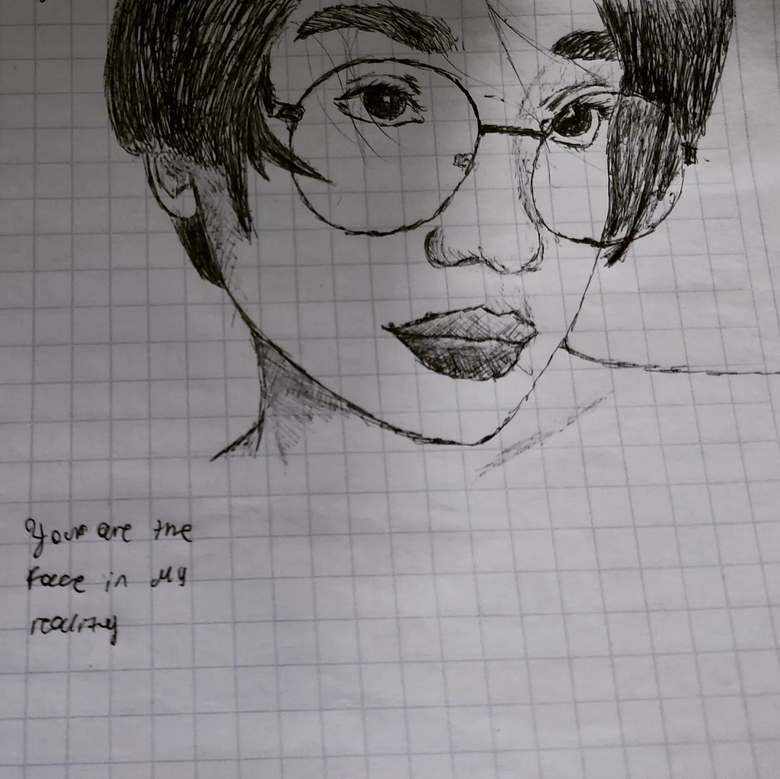 Your are the
Face in My
reality